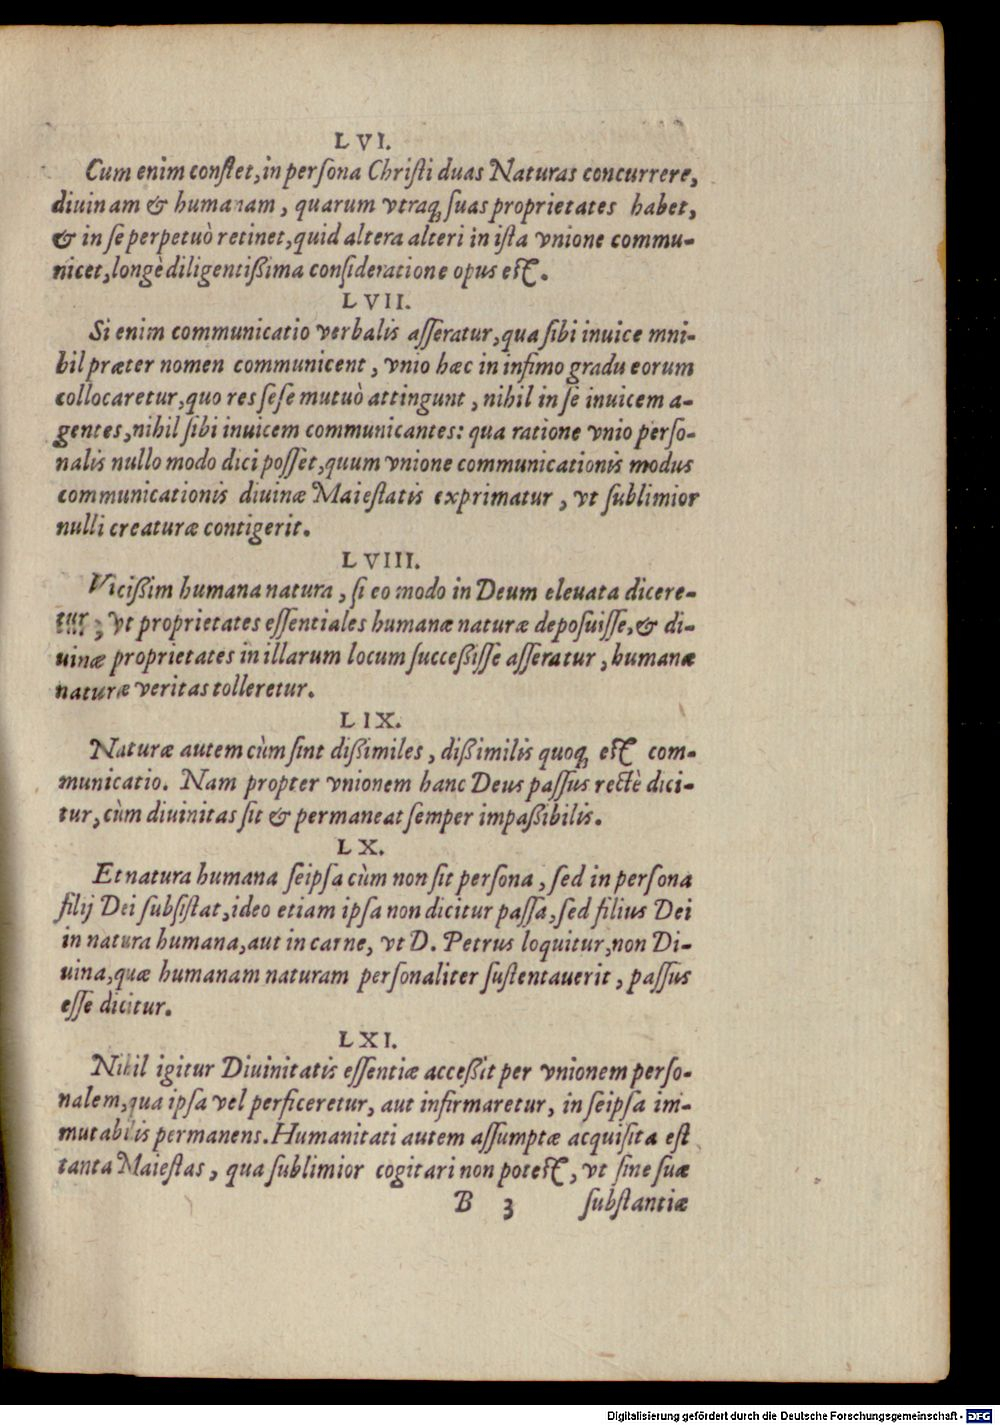 LVI.
Cum enim conſtet, in perſona Chriſti duas Naturas concurrere,
diuinam & humanam, quarum vtraq; ſuas proprietates habet,
& in ſe perpetuò retinet, quid altera alteri in iſta vnione commu-
nicet, longè diligentißima conſideratione opus eſt.
LVII.
Si enim communicatio verbalis aſſeratur, qua ſibi inuice mni-
hil præter nomen communicent, vnio hæc in infimo gradu eorum
collocaretur, quo res ſeſe mutuò attingunt, nihil in ſe inuicem a-
gentes, nihil ſibi inuicem communicantes: qua ratione vnio perſo-
nalis nullo modo dici poſſet, quum vnione communicationis modus
communicationis diuinæ Maieſtatis exprimatur, vt ſublimior
nulli creaturæ contigerit.
LVIII.
Vicißim humana natura, ſi eo modo in Deum eleuata dicere-
tur, vt proprietates eſſentiales humanæ naturæ depoſuiſſe, & di-
uinæ proprietates in illarum locum ſucceßiſſe aſſeratur, humanæ
naturæ veritas tolleretur.
LIX.
Naturæ autem cùm ſint dißimiles, dißimilis quoq; eſt com-
municatio. Nam propter vnionem hanc Deus paſſus rectè dici-
tur, cùm diuinitas ſit & permaneat ſemper impaßibilis.
LX.
Et natura humana ſeipſa cùm non ſit perſona, ſed in perſona
filij Dei ſubſiſtat, ideo etiam ipſa non dicitur paſſa, ſed filius Dei
in natura humana, aut in carne, vt D. Petrus loquitur, non Di-
uina, quæ humanam naturam perſonaliter ſuſtentauerit, paſſus
eſſe dicitur.
LXI.
Nihil igitur Diuinitatis eſſentiæ acceßit per vnionem perſo-
nalem, qua ipſa vel perficeretur, aut infirmaretur, in ſeipſa im-
mutabilis permanens. Humanitati autem aſſumptæ acquiſita eſt
tanta Maieſtas, qua ſublimior cogitari non poteſt, vt ſine ſuæ
B 3 ſubſtantiæ
Digitalisierung gefördert durch die Deutsche Forschungsgemeinschaft - DFG